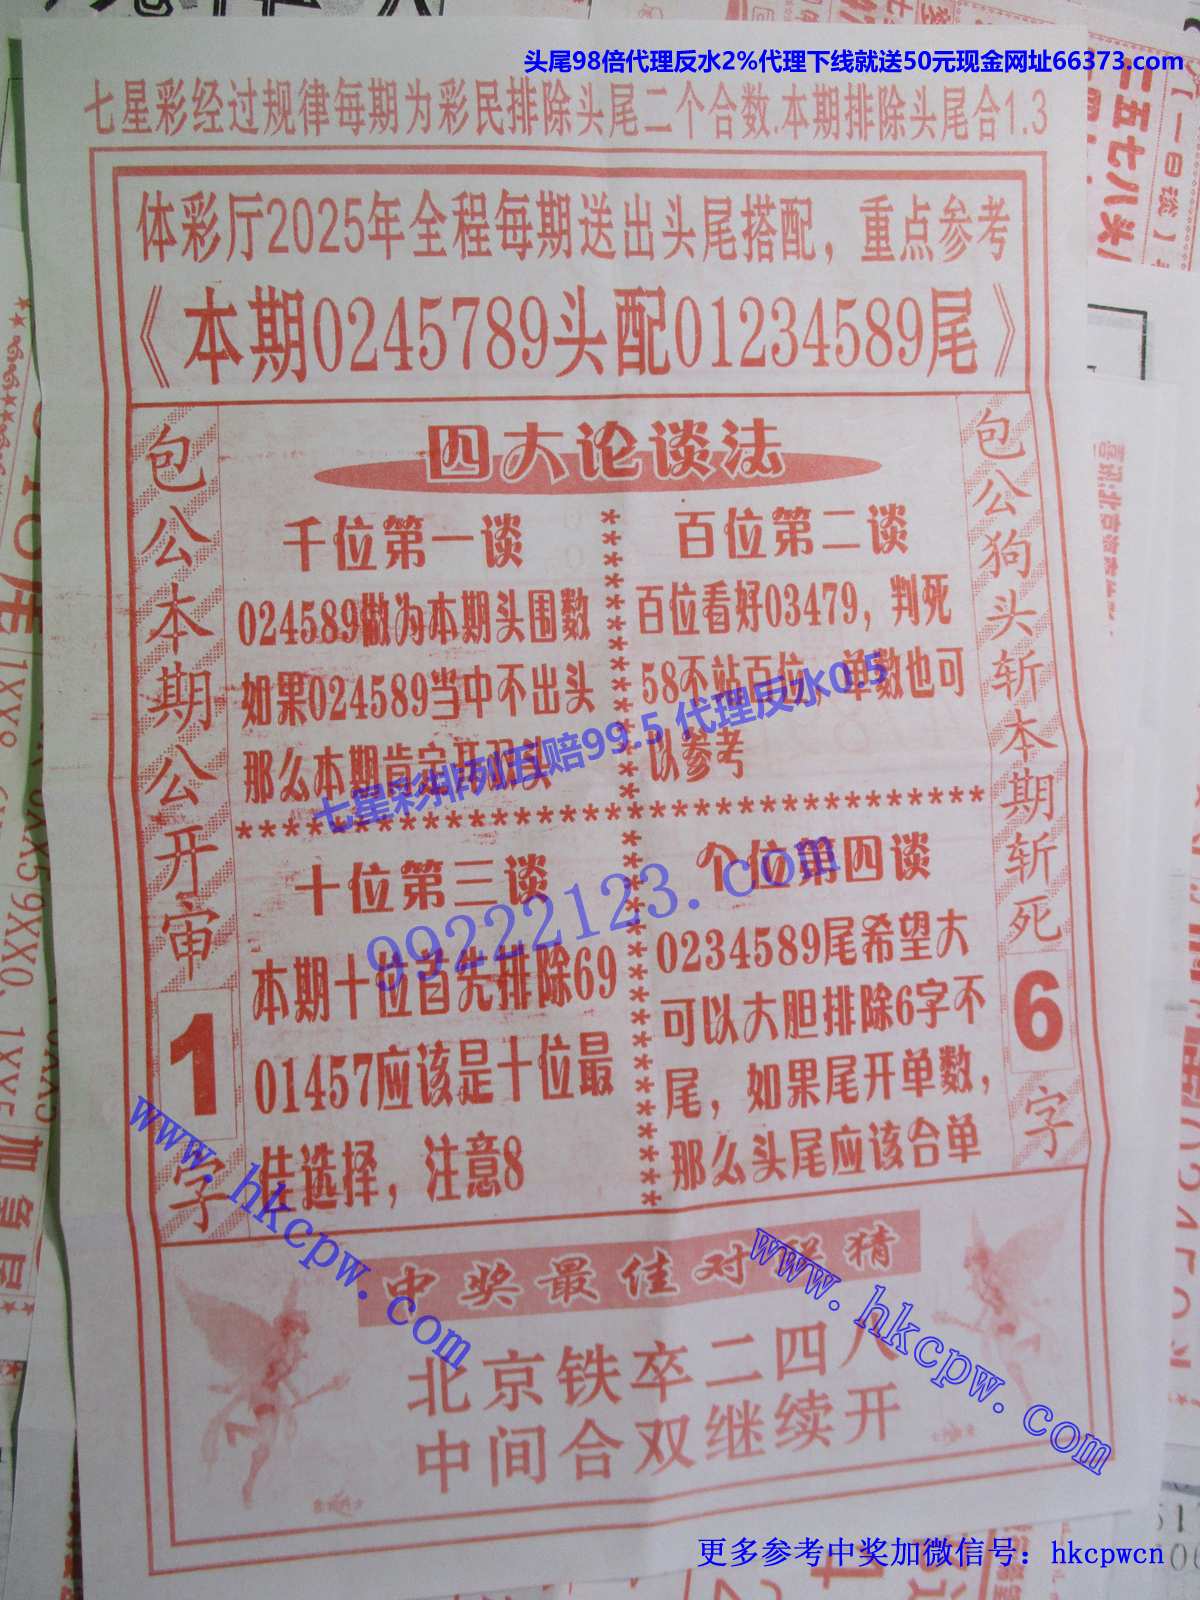 头尾98倍代理反水2%代理下线就送50元现金网址66373.com
七星彩经过规律每期为彩民排除头尾二个合数.本期排除头尾合1.3
体彩厅2025年全程每期送出头尾搭配，重点参考
《本期0245789头配01234589尾》
包公本期公开审
1
字
四大论谈法
千位第一谈
024589做为本期头围数
如果024589当中不出头
那么本期肯定开双头
百位第二谈
百位看好03479，判死
58不站百位，单数也可
以参考
七星彩排列五赔99.5 代理反水0.5
十位第三谈
本期十位首先排除69
01457应该是十位最
佳选择，注意8
个位第四谈
0234589尾希望大
可以大胆排除6字不
尾，如果尾开单数，
那么头尾应该合单
99222123.com
包公狗头斩本期斩死
6
字
中奖最佳对联猜
北京铁卒二四八
中间合双继续开
www.hkcpw.com
www.hkcpw.com
更多参考中奖加微信号：hkcpwcn
三五七八头
一日谈】